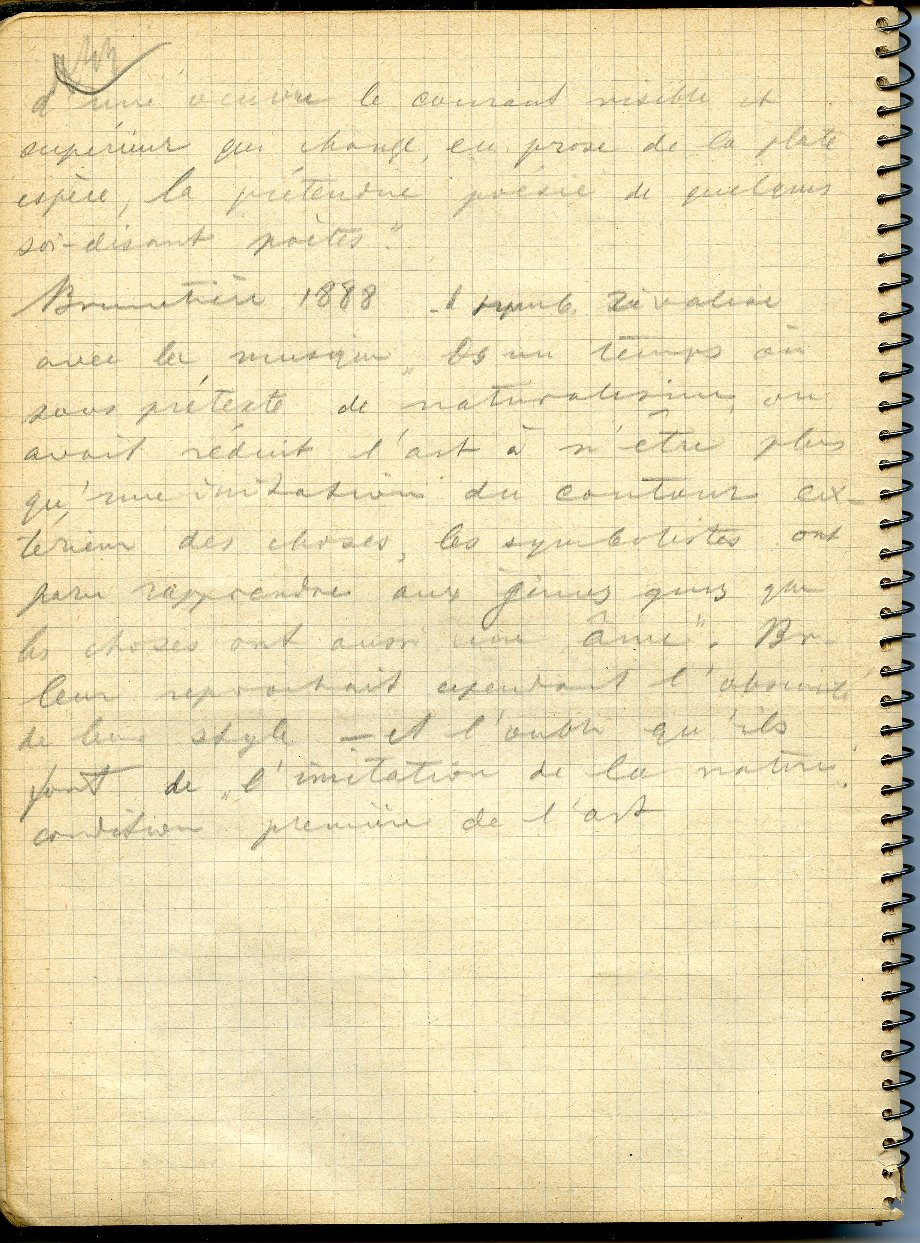 d'une oeuvre le courant visible et
supérieur qui change, en prose de la plate
espèce, la prétendue poésie de quelques
soi-disant poètes"
Brunetière 1888 symb. rivalise
avec la musique „Ds un temps où
sous prétexte de naturalisme, on
avait réduit l'art à n'être plus
qu'une imitation du contour ex-
térieur des choses, les symbolistes ont
paru rapprendre aux jeunes gens que
les choses ont aussi une âme". Br.
leur reprochait cependant l'obscurité
de leur style – et l'oubli qu'ils
font de „l'imitation de la nature"
condition première de l'art